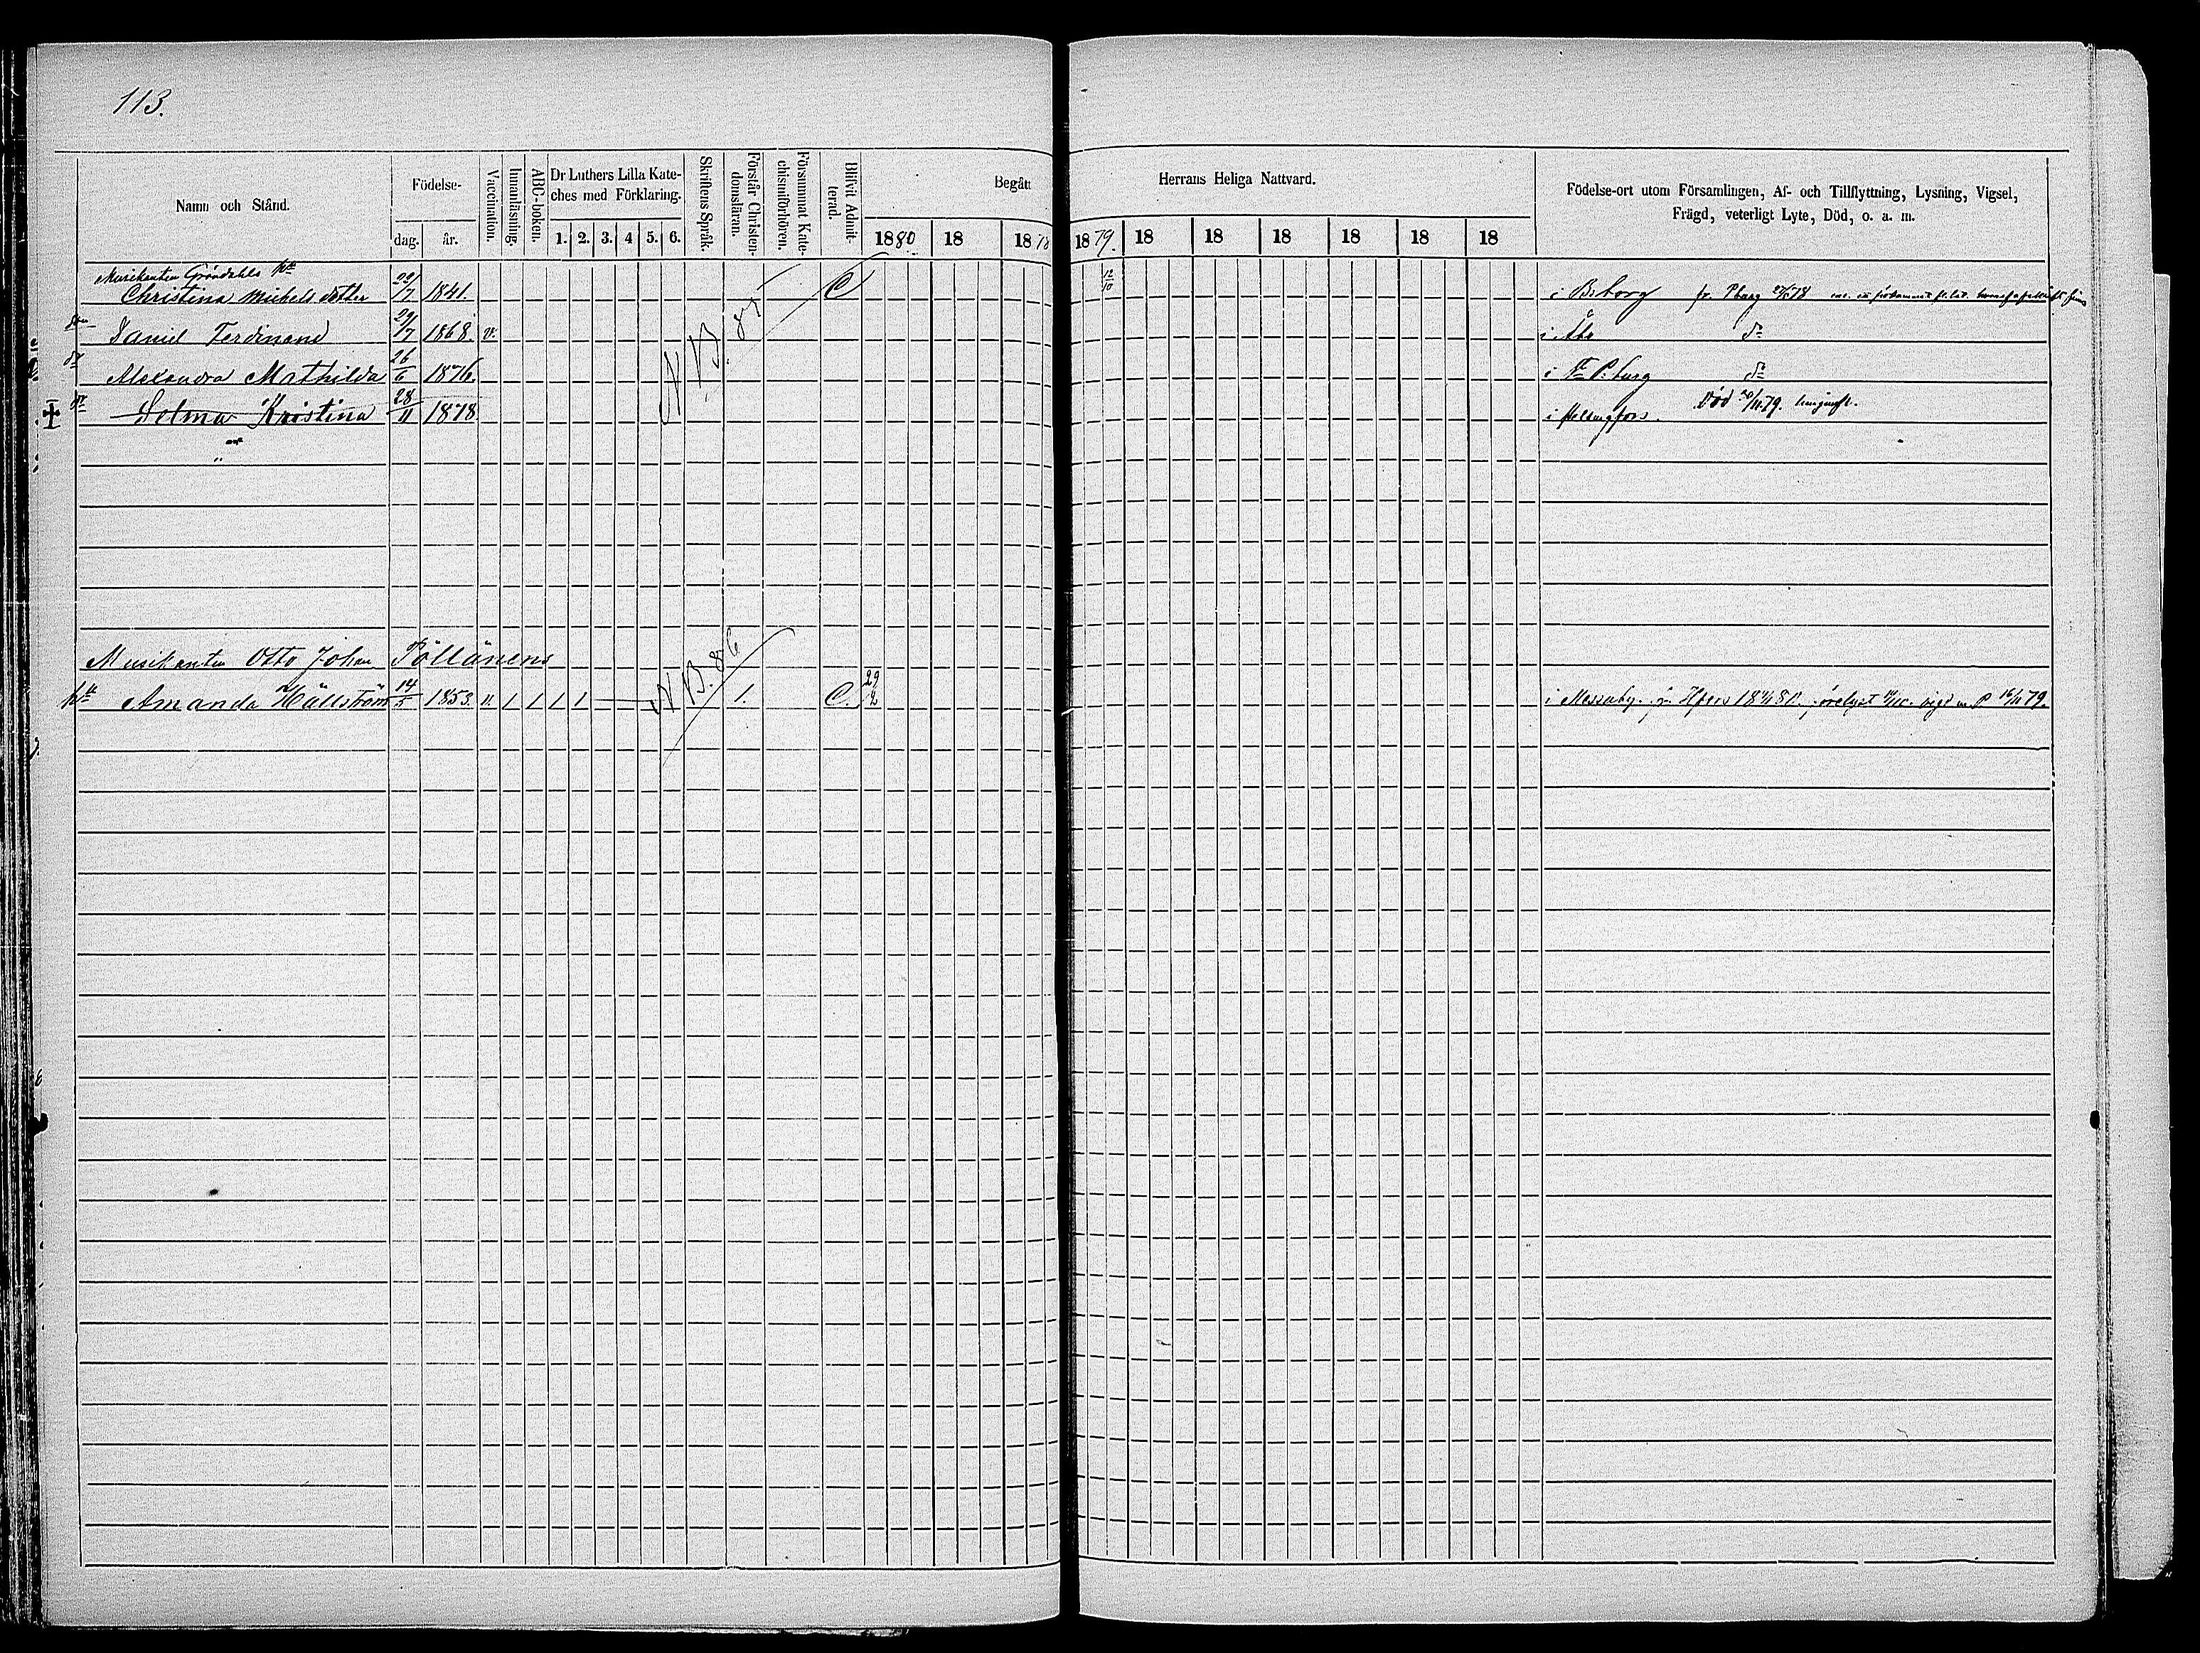 113.
Namn och Stånd.
Födelse-
dag. år.
Vaccination.
Innanläsning.
ABC-boken.
Dr Luthers Lilla Kate-
ches med Förklaring.
1. 2. 3. 4 5. 6.
Skriftens Språk.
Förstår Christen-
domsläran.
Försummat Kate-
chismiförhören.
Blifvit Admit-
terad.
Begått Herrans Heliga Nattvard.
1880 18 1878 1879. 18 18 18 18 18 18
Födelse-ort utom Församlingen, Af- och Tillflyttning, Lysning, Vigsel,
Frägd, veterligt Lyte, Död, o. a. m.
Musikanten Gröndahls
Christina Michelsdotter 22/7 1841. C 12/10 i fr. Pburg
N.B. 85
Daniel Ferdinand 29/7 1868. v. i Åbo do
do Alexandra Mathilda 26/6 1876. i St P:burg do
do Selma Kristina 28/11 1878 i Helsingfors. Död /11.79.
Musikanten Otto Johan Pöllänens
N.B. 86
Amanda Hällström 14/5 1853. v. 1 1 1 1 1. C. 29/2 i Messuby. 80. vigd m. P 16/11 79.